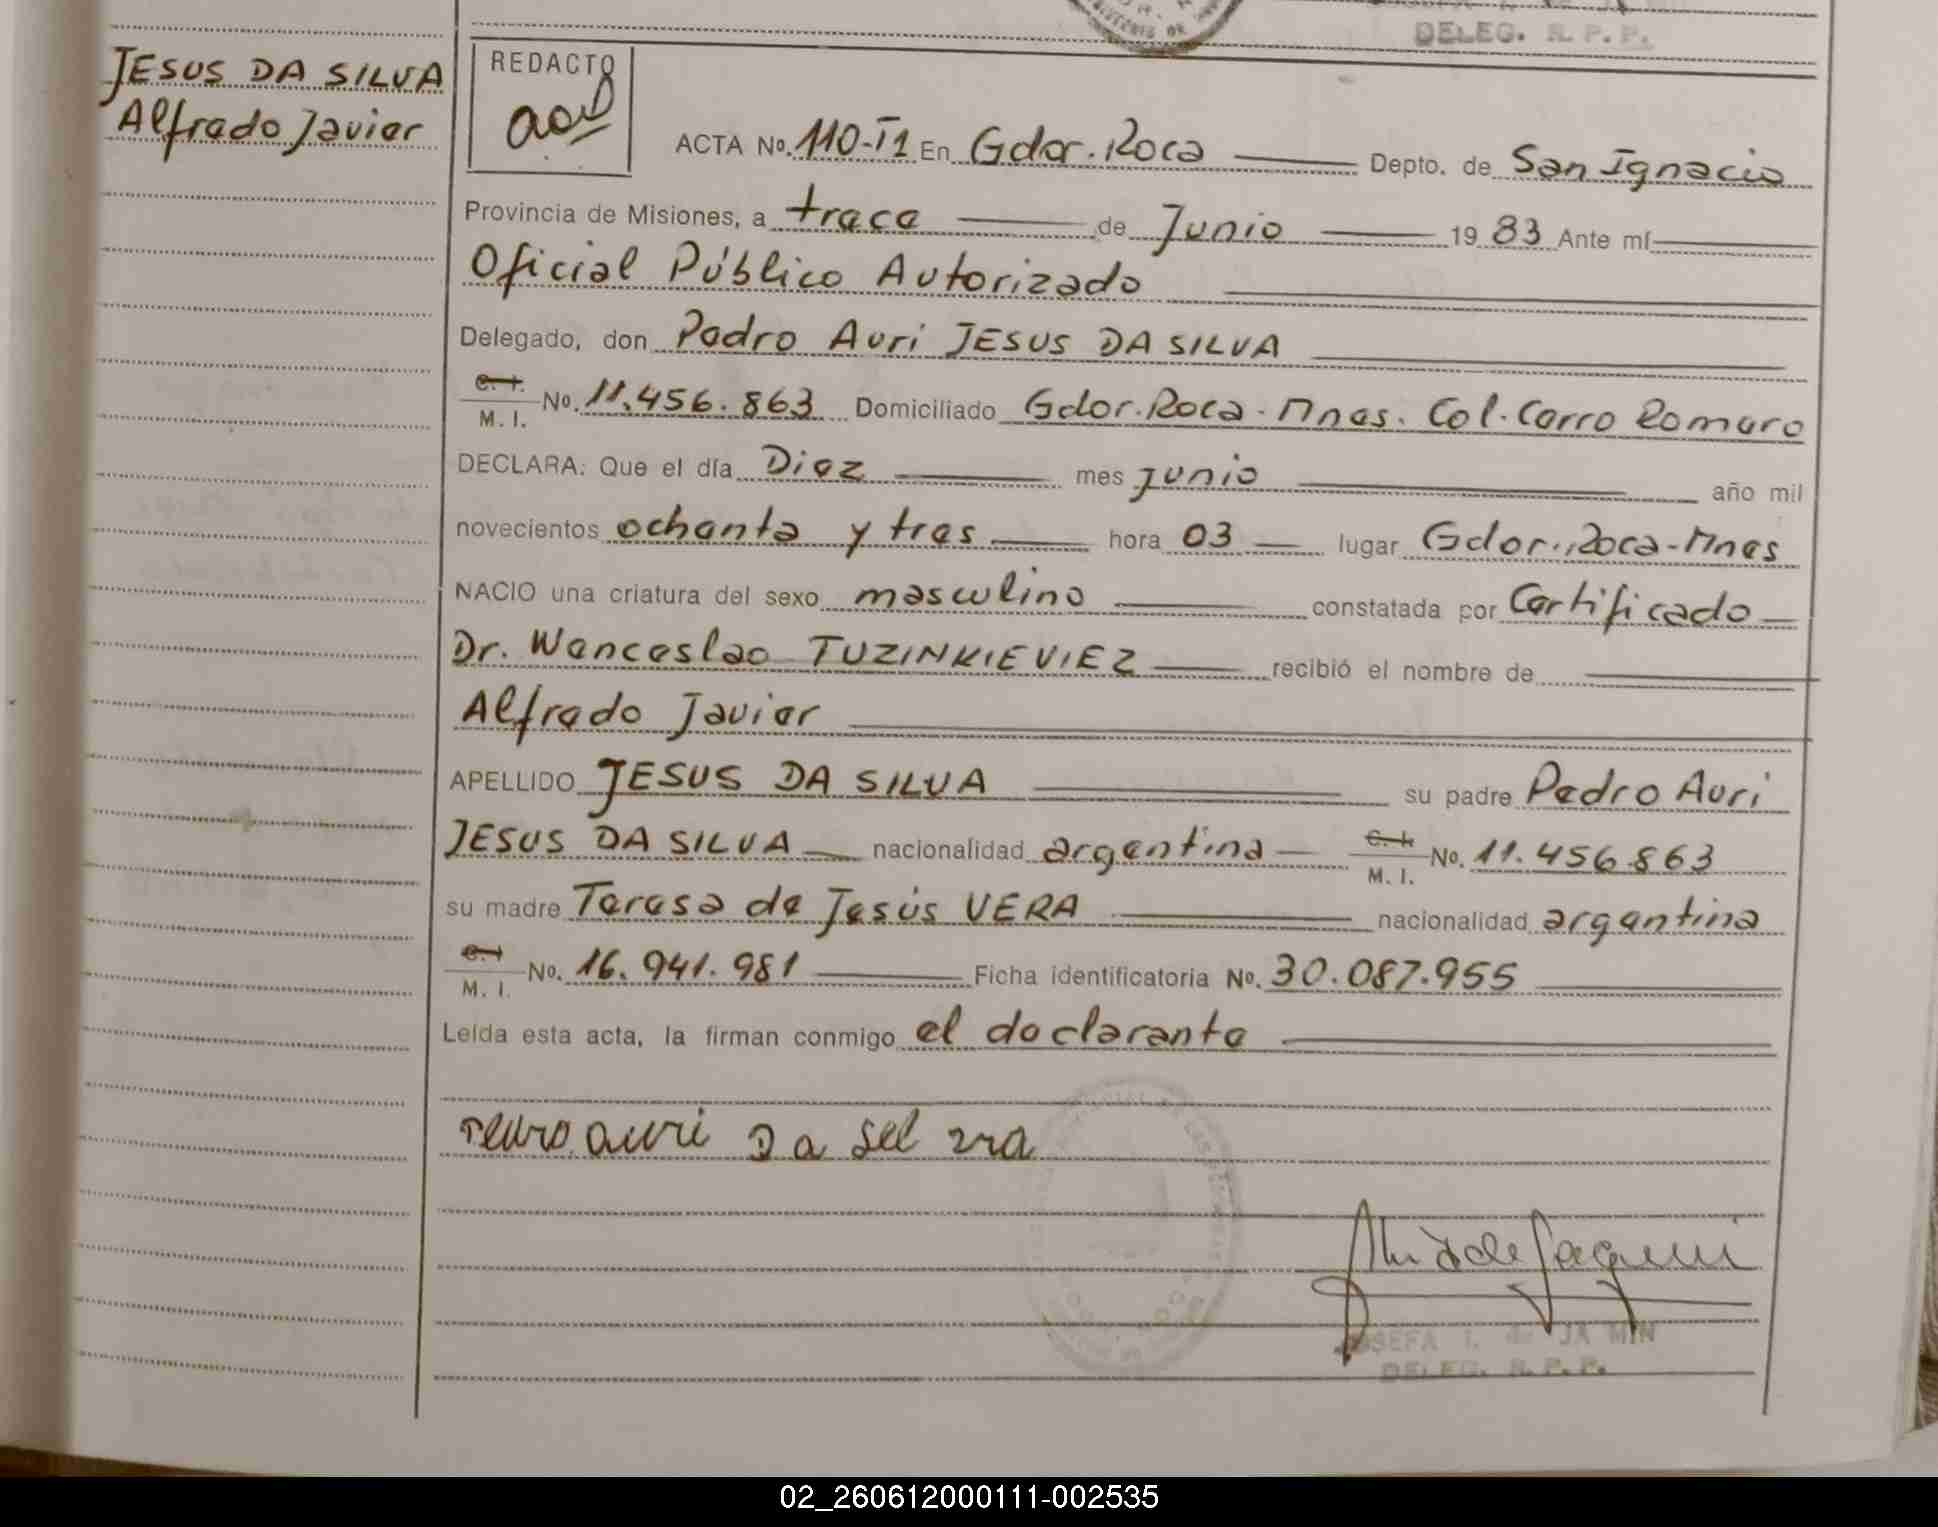 DELEG. R.P.P.
JESUS DA SILVA
Alfredo Javier
REDACTO
ACTA No. 110-T1 En Gdor. Roca Depto. de San Ignacio
Provincia de Misiones, a trece de Junio 1983 Ante mí
Oficial Público Autorizado
Delegado, don Pedro Auri JESUS DA SILVA
C. I.
M. I. No. 11.456.863 Domiciliado Gdor. Roca - Mnes. Col. Carro Romero
DECLARA: Que el día Diez mes junio año mil
novecientos ochenta y tres hora 03 lugar Gdor. Roca - Mnes
NACIO una criatura del sexo masculino constatada por Certificado
Dr. Wenceslao TUZINKIEVIEZ recibió el nombre de
Alfredo Javier
APELLIDO JESUS DA SILVA su padre Pedro Auri
JESUS DA SILVA nacionalidad argentina C. I.
M. I. No. 11.456.863
su madre Teresa de Jesús VERA nacionalidad argentina
C. I.
M. I. No. 16.941.981 Ficha identificatoria No. 30.087.955
Leída esta acta, la firman conmigo el declarante
auri Da sel vra
JOSEFA I. de JA MIN
DELEG. R.P.P.
02_260612000111-002535